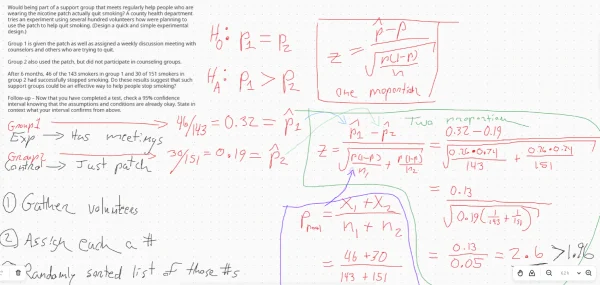 Would being part of a support group that meets regularly help people who are
wearing the nicotine patch actually quit smoking? A county health department
tries an experiment using several hundred volunteers how were planning to
use the patch to help quit smoking. (Design a quick and simple experimental
design.)
Group 1 is given the patch as well as assigned a weekly discussion meeting with
counselors and others who are trying to quit.
Group 2 also used the patch, but did not participate in counseling groups.
After 6 months, 46 of the 143 smokers in group 1 and 30 of 151 smokers in
group 2 had successfully stopped smoking. Do these results suggest that such
support groups could be an effective way to help people stop smoking?
Follow-up – Now that you have completed a test, check a 95% confidence
interval knowing that the assumptions and conditions are already okay. State in
context what your interval confirms from above.
H₀: p₁ = p₂
H_A: p₁ > p₂
z = (p̂ - p) / √(p(1-p)/n)
one proportion
Group 1 → 46/143 = 0.32 = p̂₁
Exp → Has meetings
Group 2 → 30/151 = 0.19 = p̂₂
Control → Just patch
① Gather volunteers
② Assign each a #
Randomly sorted list of those #s
Two proportion
z = (p̂₁ - p̂₂) / √(p(1-p)/n₁ + p(1-p)/n₂)
0.32 - 0.19 / √(0.26·0.74/143 + 0.26·0.74/151)
= 0.13 / √(0.19(1/143 + 1/151))
= 0.13/0.05 = 2.6 > 1.96
p pool = X₁ + X₂ / n₁ + n₂
= 46 + 30 / 143 + 151